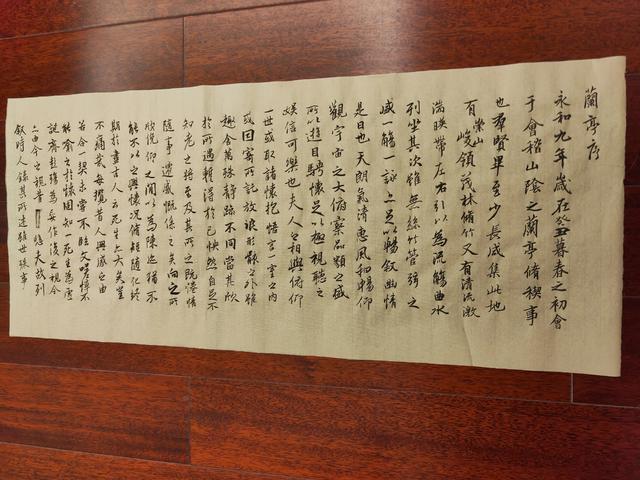 蘭亭序
永和九年歲在癸丑暮春之初會
于會稽山陰之蘭亭脩稧事
也羣賢畢至少長咸集此地
有崇山峻領茂林脩竹又有清流激
湍暎帶左右引以為流觴曲水
列坐其次雖無絲竹管弦之
盛一觴一詠亦足以暢敘幽情
是日也天朗氣清惠風和暢仰
觀宇宙之大俯察品類之盛
所以遊目騁懷足以極視聽之
娛信可樂也夫人之相與俯仰
一世或取諸懷抱悟言一室之內
或因寄所託放浪形骸之外雖
趣舍萬殊靜躁不同當其欣
於所遇暫得於己怏然自足不
知老之將至及其所之既惓情
隨事遷感慨係之矣向之所
欣俛仰之間以為陳迹猶不
能不以之興懷況脩短隨化終
期於盡古人云死生亦大矣豈
不痛哉每攬昔人興感之由
若合一契未嘗不臨文嗟悼不
能喻之於懷固知一死生為虛
誕齊彭殤為妄作後之視今
亦由今之視昔悲夫故列
敘時人錄其所述雖世殊事